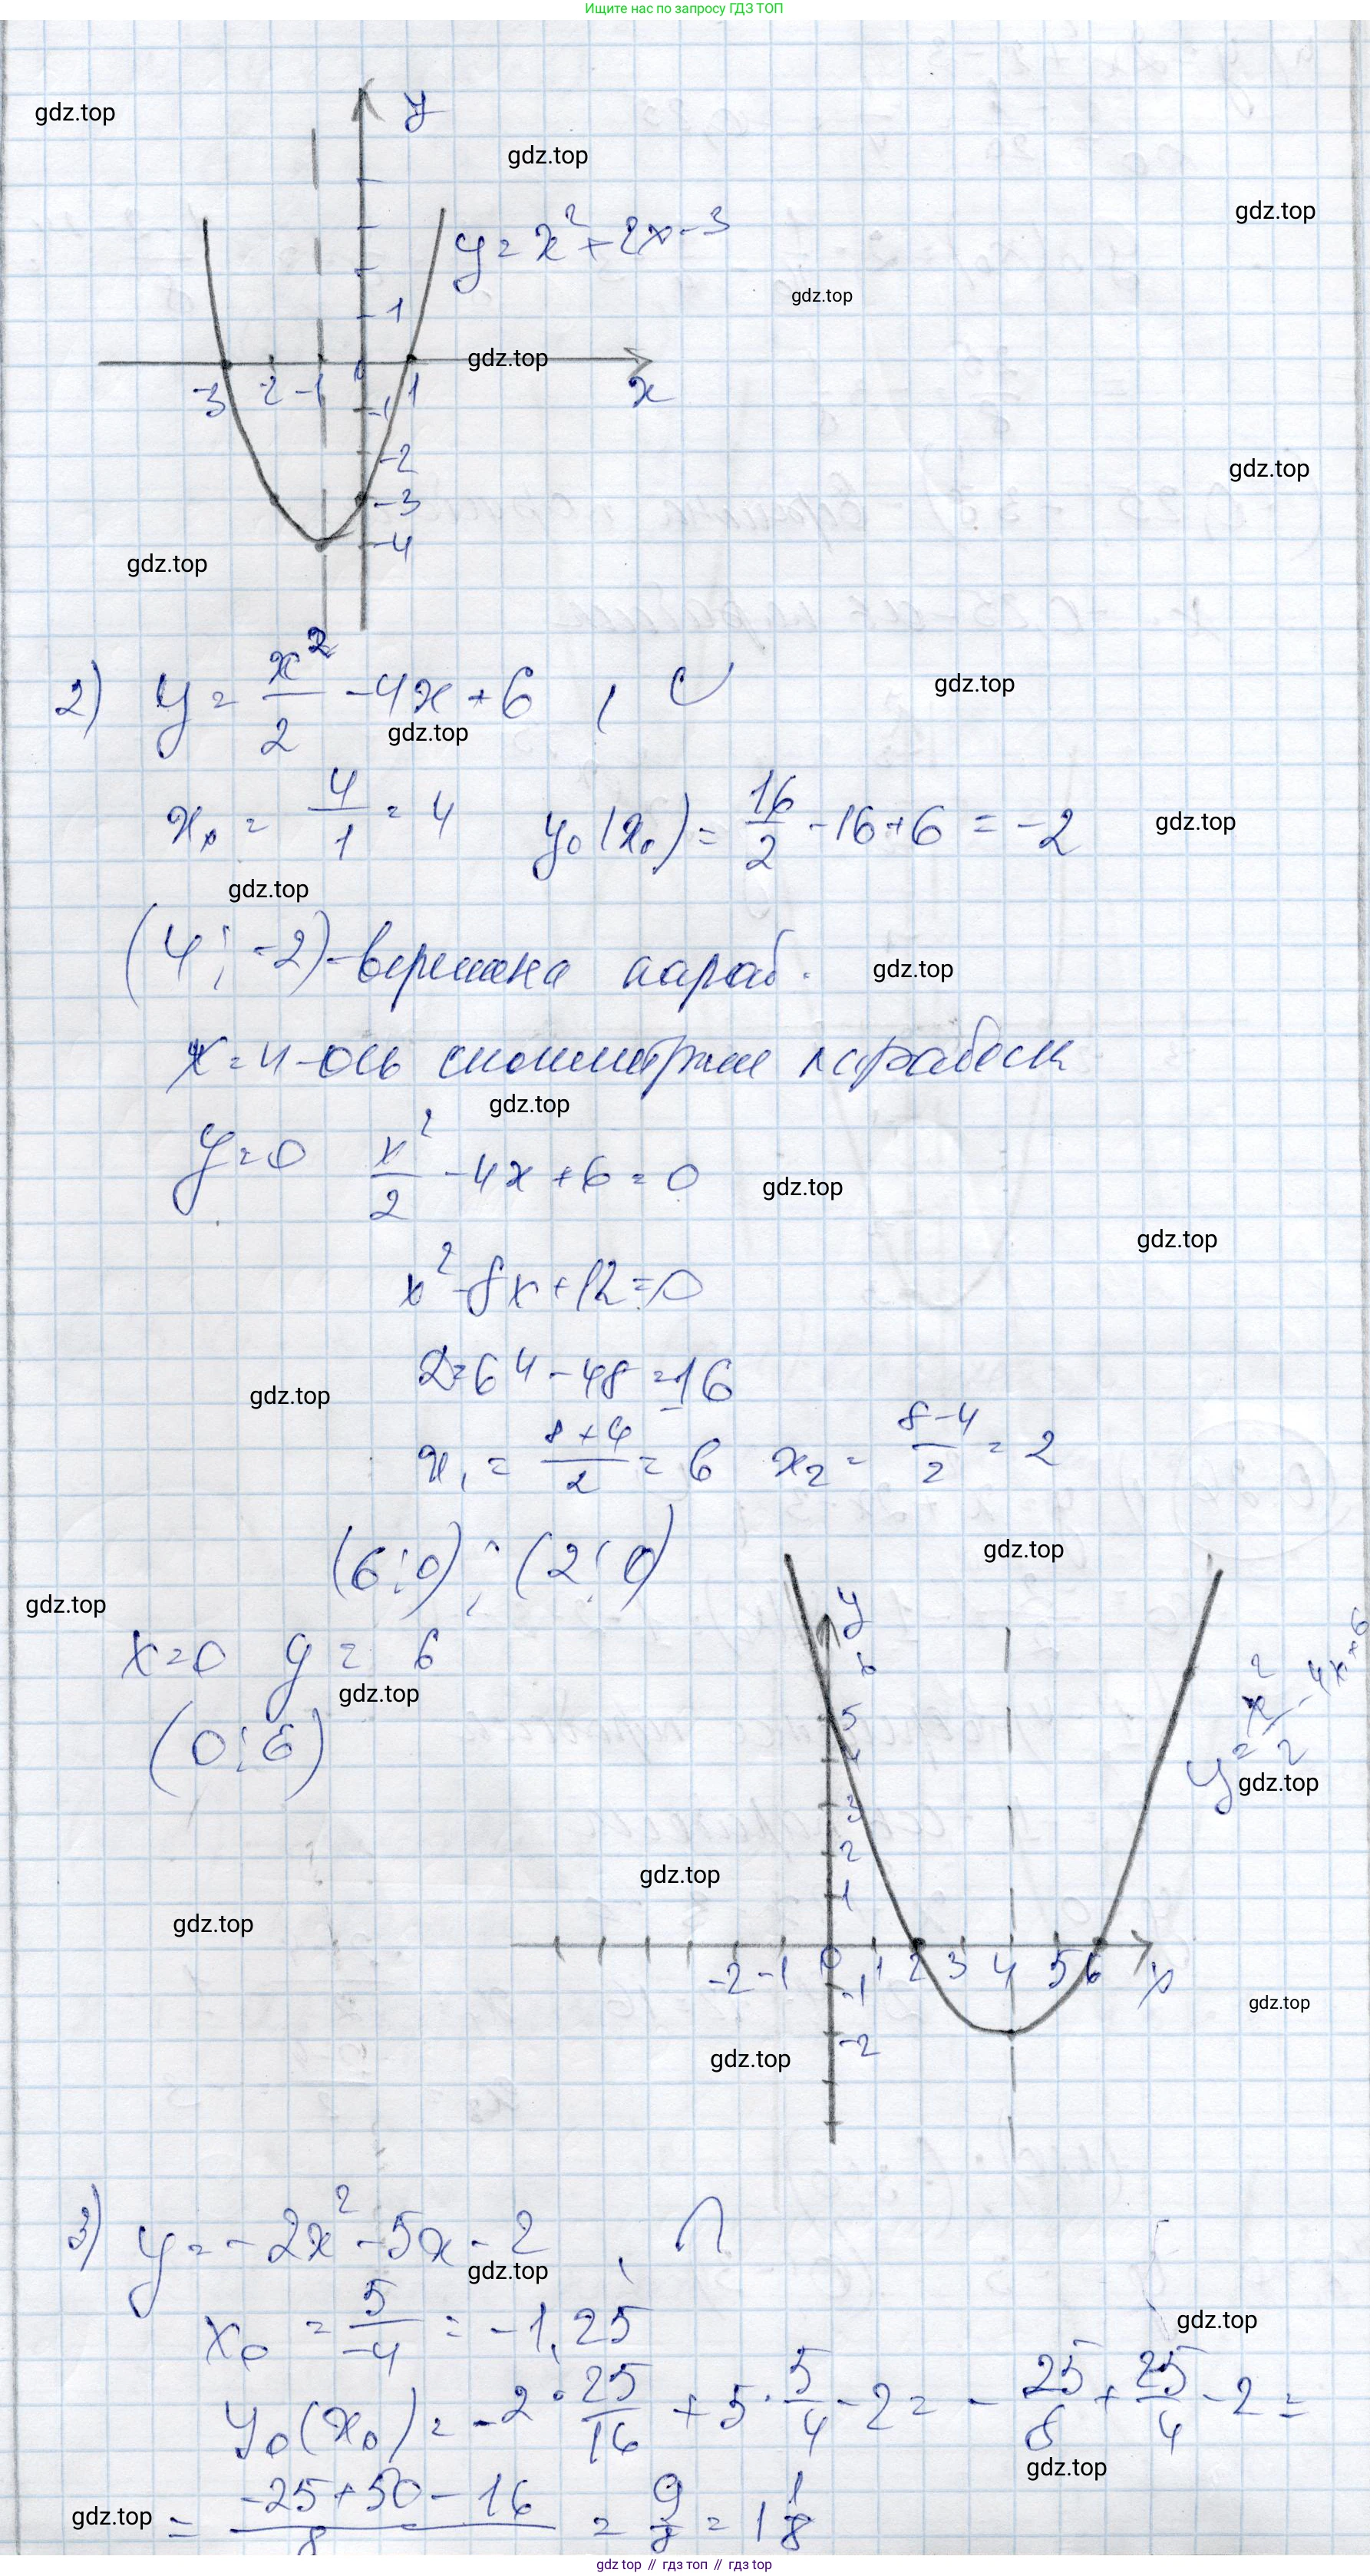 Ищите нас по запросу ГДЗ ТОП
y
gdz.top
gdz.top
gdz.top
y = x² + 2x - 3
gdz.top
1
gdz.top
-3 -2 -1 0 1 x
-1
-2
gdz.top
-3
-4
gdz.top
2) y = x²/2 - 4x + 6 , ∪
gdz.top
gdz.top
x₀ = 4/1 = 4 y₀(x₀) = 16/2 - 16 + 6 = -2
gdz.top
gdz.top
(4; -2) - вершина параб.
gdz.top
x = 4 - ось симметрии параболы
gdz.top
y = 0 x²/2 - 4x + 6 = 0
gdz.top
gdz.top
x² - 8x + 12 = 0
D = 64 - 48 = 16
gdz.top
x₁ = (8+4)/2 = 6 x₂ = (8-4)/2 = 2
gdz.top
(6; 0) ; (2; 0)
gdz.top
x = 0 y = 6
gdz.top
(0; 6)
y
6
5
4
3
2
1
y = x²/2 - 4x + 6
gdz.top
gdz.top
gdz.top
-2 -1 0 1 2 3 4 5 6 x
-1
gdz.top
-2
gdz.top
3) y = -2x² - 5x - 2 , ∩
gdz.top
x₀ = 5/-4 = -1,25
gdz.top
y₀(x₀) = -2 · 25/16 + 5 · 5/4 - 2 = - 25/8 + 25/4 - 2 =
gdz.top
gdz.top
= (-25 + 50 - 16)/8 = 9/8 = 1 1/8
gdz top // гдз топ // gdz top